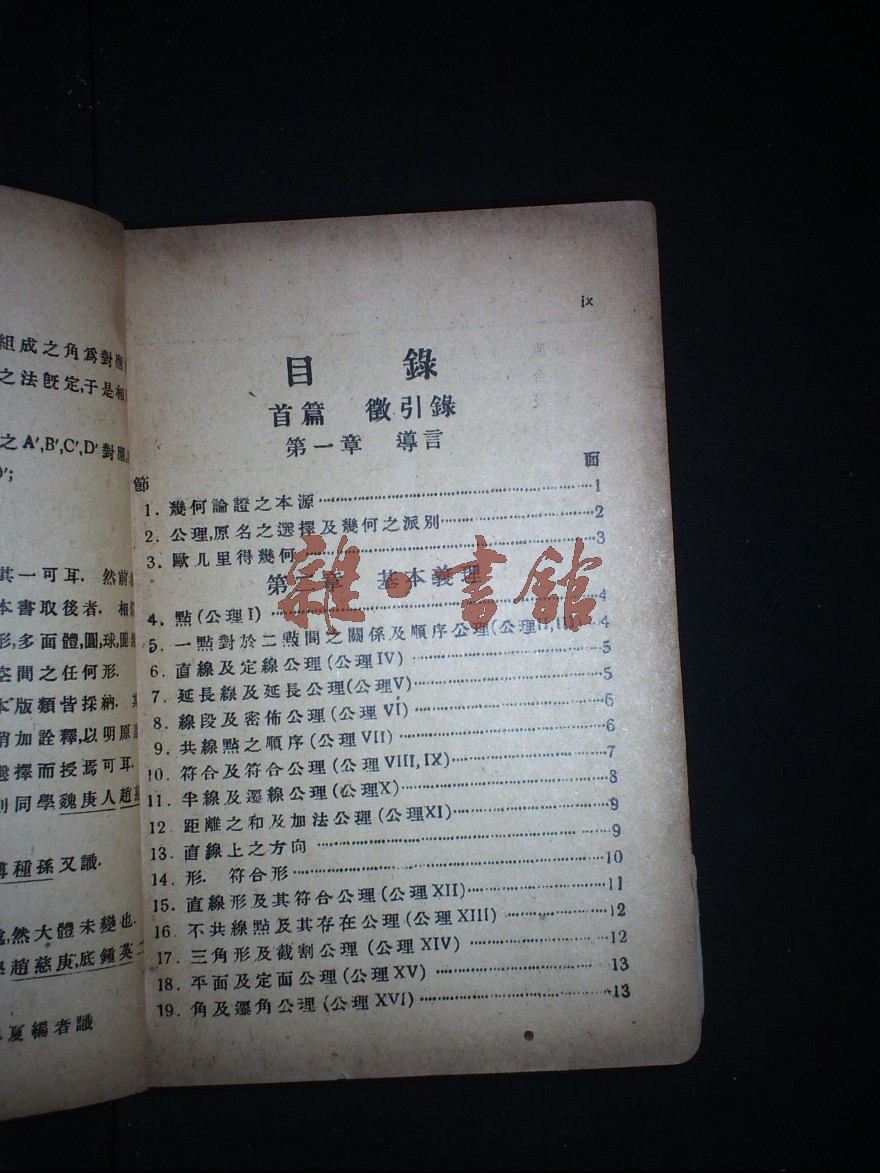 組成之角爲對應
之法旣定,于是相
之A′,B′,C′,D′對應
′;
其一可耳. 然前
本書取後者. 相
形,多面體,圓,球,圓
空間之任何形.
本版類皆採納.
稍加詮釋,以明原
選擇而授焉可耳.
則同學魏庚人趙
種孫又識.
然大體未變也.
趙慈庚,底鍾英
夏編者識
ix
目 錄
首篇 徵引錄
第一章 導言
節 面
1. 幾何論證之本源 1
2. 公理,原名之選擇及幾何之派別 2
3. 歐几里得幾何 3
第二章 基本義理
4. 點(公理 I) 4
5. 一點對於二點間之關係及順序公理(公理II,III) 4
6. 直線及定線公理(公理IV) 5
7. 延長線及延長公理(公理V) 5
8. 線段及密佈公理(公理 VI) 6
9. 共線點之順序(公理 VII) 6
10. 符合及符合公理(公理 VIII, IX) 7
11. 半線及遷線公理(公理X) 8
12 距離之和及加法公理(公理XI) 9
13. 直線上之方向 9
14. 形. 符合形 10
15. 直線形及其符合公理(公理 XII) 11
16. 不共線點及其存在公理(公理 XIII) 12
17. 三角形及截割公理(公理 XIV) 12
18. 平面及定面公理(公理 XV) 13
19. 角及遷角公理(公理 XVI) 13
雜·書館